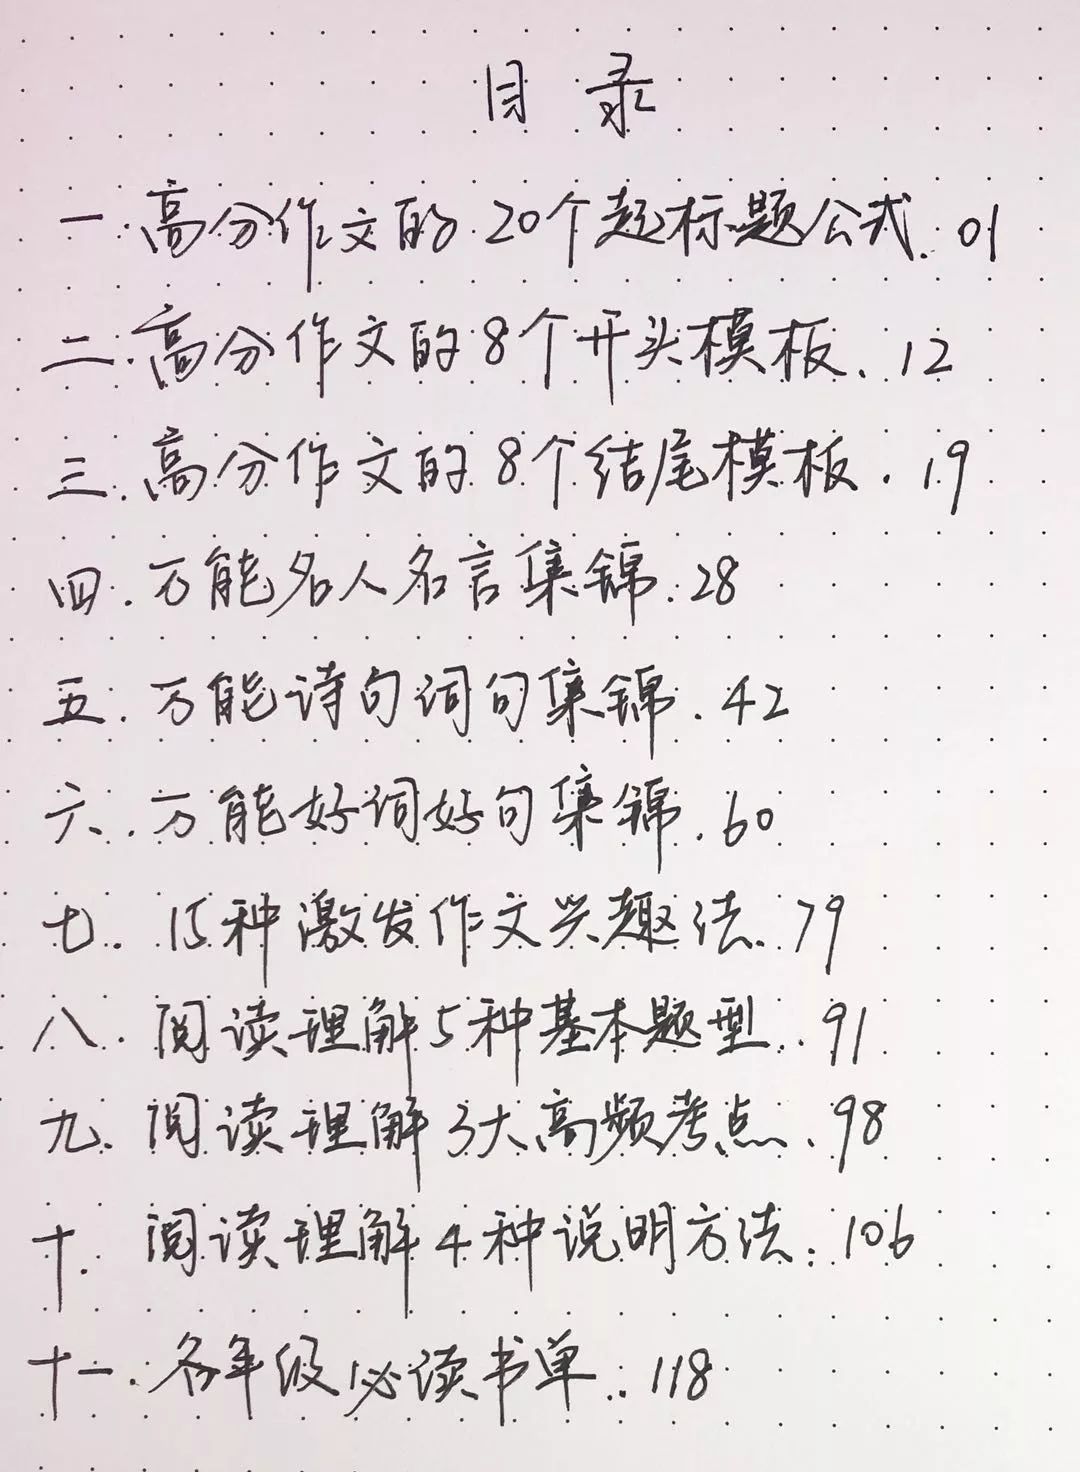 目录
一.高分作文的20个起标题公式.01
二.高分作文的8个开头模板.12
三.高分作文的8个结尾模板.19
四.万能名人名言集锦.28
五.万能诗句词句集锦.42
六.万能好词好句集锦.60
七.15种激发作文兴趣法.79
八.阅读理解5种基本题型.91
九.阅读理解3大高频考点.98
十.阅读理解4种说明方法.106
十一.各年级必读书单.118